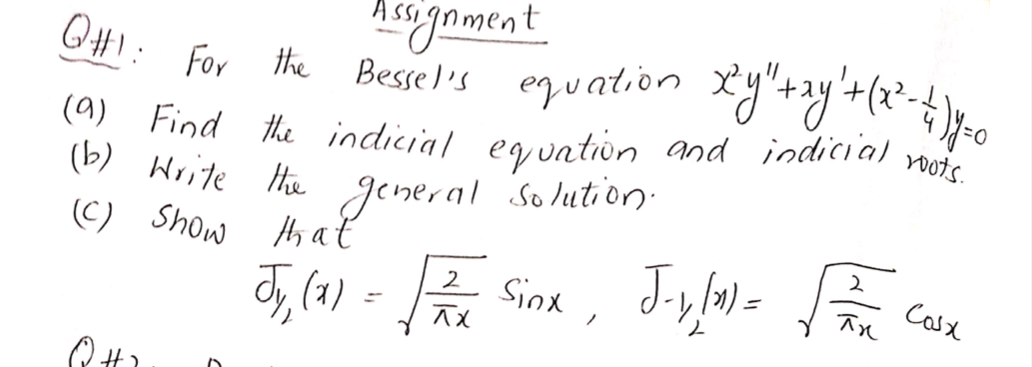 Assignment
Q#1: For the Bessel's equation x²y"+xy'+(x²-1/4)y=0
(a) Find the indicial equation and indicial roots.
(b) Write the general solution.
(c) Show that
J_{1/2}(x) = √(2/πx) Sinx , J_{-1/2}(x) = √(2/πx) Cosx
Q#2